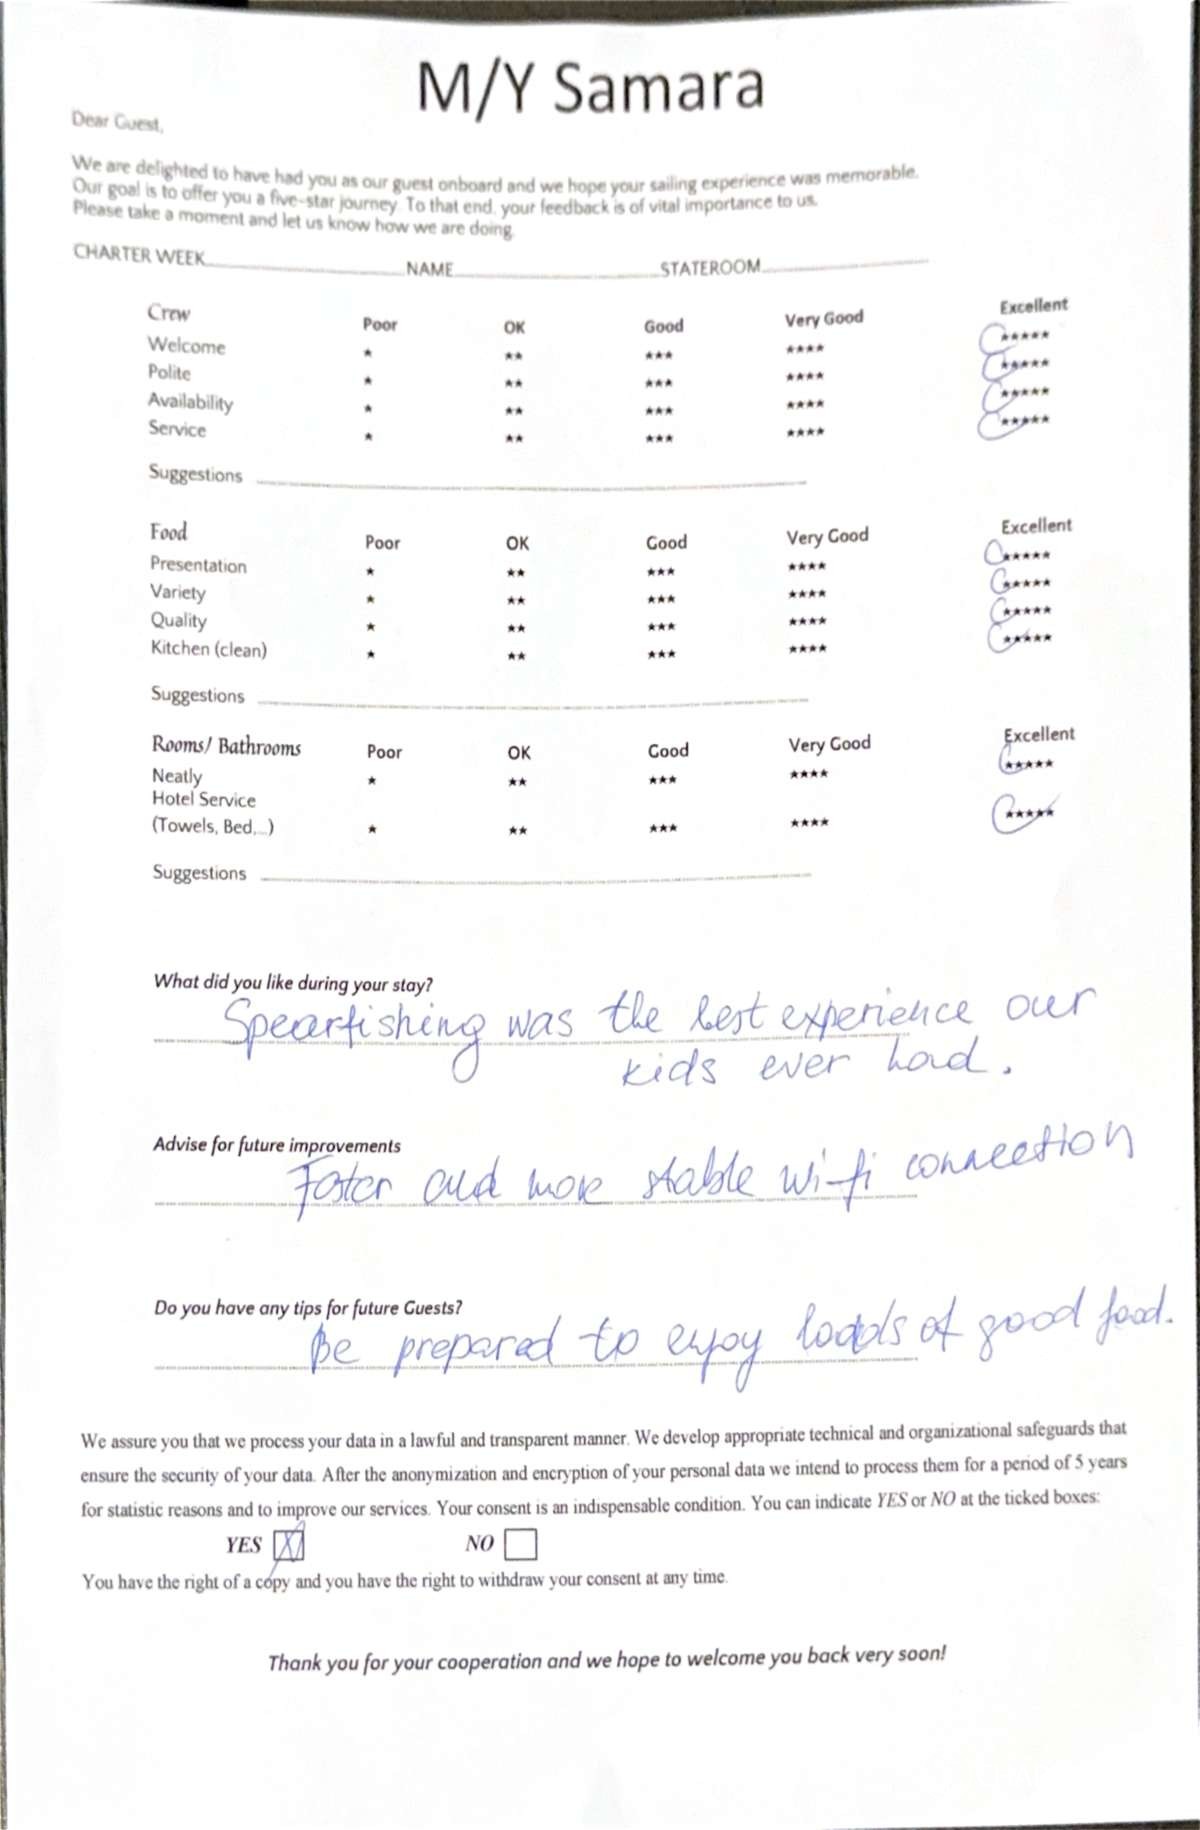 M/Y Samara
Dear Guest,
We are delighted to have had you as our guest onboard and we hope your sailing experience was memorable.
Our goal is to offer you a five-star journey. To that end, your feedback is of vital importance to us.
Please take a moment and let us know how we are doing.
CHARTER WEEK NAME STATEROOM
Crew Poor OK Good Very Good Excellent
Welcome ★ ★★ ★★★ ★★★★ ★★★★★
Polite ★ ★★ ★★★ ★★★★ ★★★★★
Availability ★ ★★ ★★★ ★★★★ ★★★★★
Service ★ ★★ ★★★ ★★★★ ★★★★★
Suggestions
Food Poor OK Good Very Good Excellent
Presentation ★ ★★ ★★★ ★★★★ ★★★★★
Variety ★ ★★ ★★★ ★★★★ ★★★★★
Quality ★ ★★ ★★★ ★★★★ ★★★★★
Kitchen (clean) ★ ★★ ★★★ ★★★★ ★★★★★
Suggestions
Rooms/ Bathrooms Poor OK Good Very Good Excellent
Neatly ★ ★★ ★★★ ★★★★ ★★★★★
Hotel Service
(Towels, Bed,...) ★ ★★ ★★★ ★★★★ ★★★★★
Suggestions
What did you like during your stay?
Spearfishing was the best experience our
kids ever had.
Advise for future improvements
Faster and more stable wi-fi connection
Do you have any tips for future Guests?
Be prepared to enjoy loads of good food.
We assure you that we process your data in a lawful and transparent manner. We develop appropriate technical and organizational safeguards that
ensure the security of your data. After the anonymization and encryption of your personal data we intend to process them for a period of 5 years
for statistic reasons and to improve our services. Your consent is an indispensable condition. You can indicate YES or NO at the ticked boxes:
YES X NO
You have the right of a copy and you have the right to withdraw your consent at any time.
Thank you for your cooperation and we hope to welcome you back very soon!